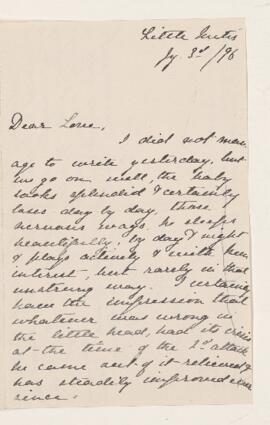 Little
Jy. 3d /96
Dear Love,
I did not man-
age to write yesterday, but
we go on well, the baby
looks splendid & certainly
loses day by day, those
nervous ways, he sleeps
beautifully; by day & night
& plays actively & with keen
interest, but rarely in that
unstrung way. I certainly
have the impression that
whatever was wrong in
the little head, had its crisis
at the time of the 2d attack
he came out of it relieved &
has steadily improved ever
since.